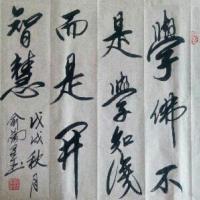 學佛不
是學知識
而是開
智慧
戊戌秋月